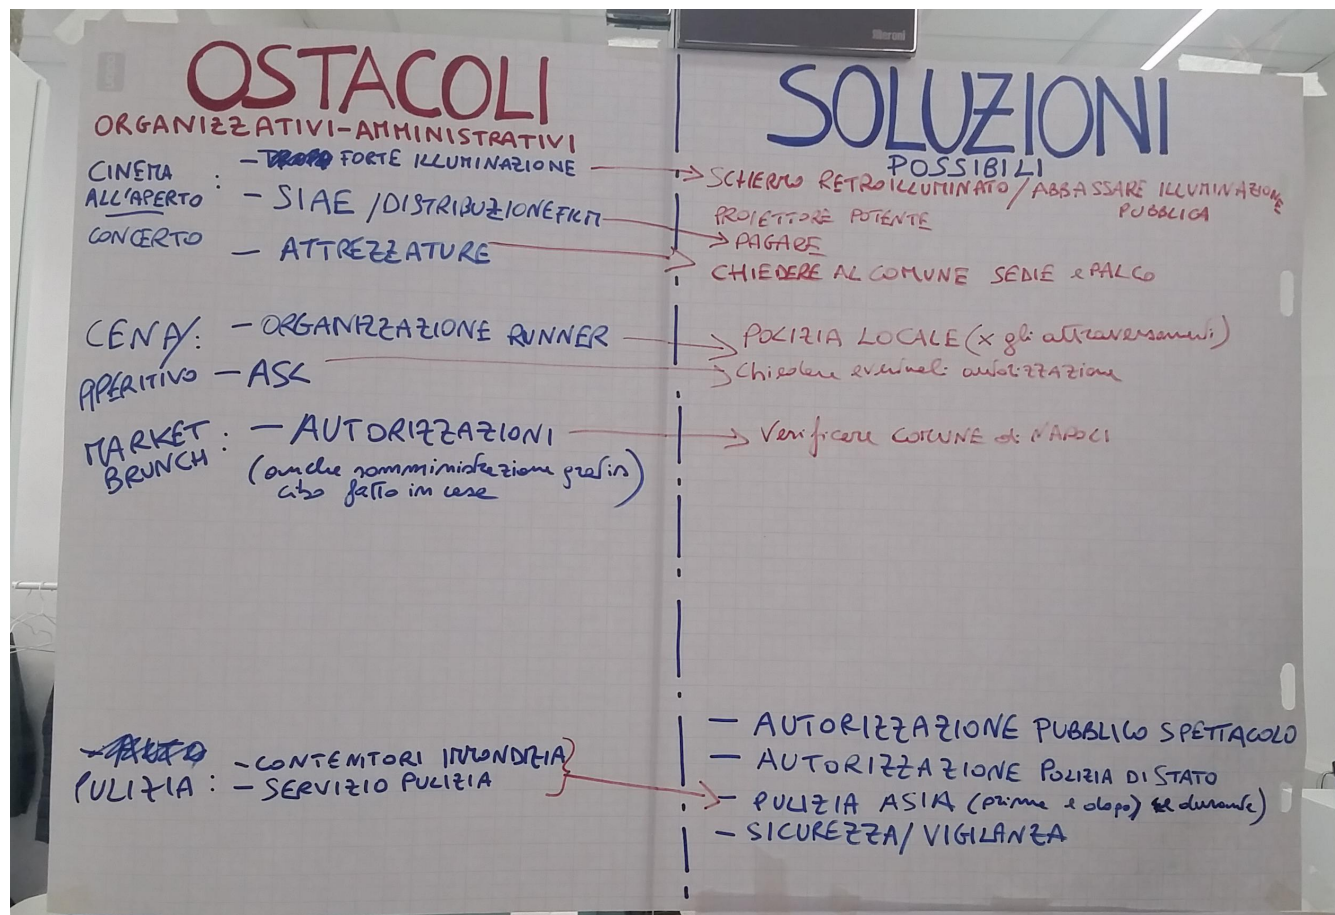 liberoni
OSTACOLI
ORGANIZZATIVI-AMMINISTRATIVI
CINEMA
ALL'APERTO :
CONCERTO
- FORTE ILLUMINAZIONE
- SIAE / DISTRIBUZIONE FILM
- ATTREZZATURE
CENA/:
APERITIVO
- ORGANIZZAZIONE RUNNER
- ASL
MARKET :
BRUNCH
- AUTORIZZAZIONI
(anche somministrazione gratis)
cibo fatto in case
PULIZIA :
- CONTENITORI IMMONDIZIA
- SERVIZIO PULIZIA
SOLUZIONI
POSSIBILI
SCHERMO RETROILLUMINATO / ABBASSARE ILLUMINAZIONE
PUBBLICA
PROIETTORE POTENTE
PAGARE
CHIEDERE AL COMUNE SEDIE e PALCO
POLIZIA LOCALE (x gli attraversamenti)
Chiedere eventuali autorizzazione
Verificare COMUNE di NAPOLI
- AUTORIZZAZIONE PUBBLICO SPETTACOLO
- AUTORIZZAZIONE POLIZIA DI STATO
- PULIZIA ASIA (prima e dopo) durante)
- SICUREZZA / VIGILANZA